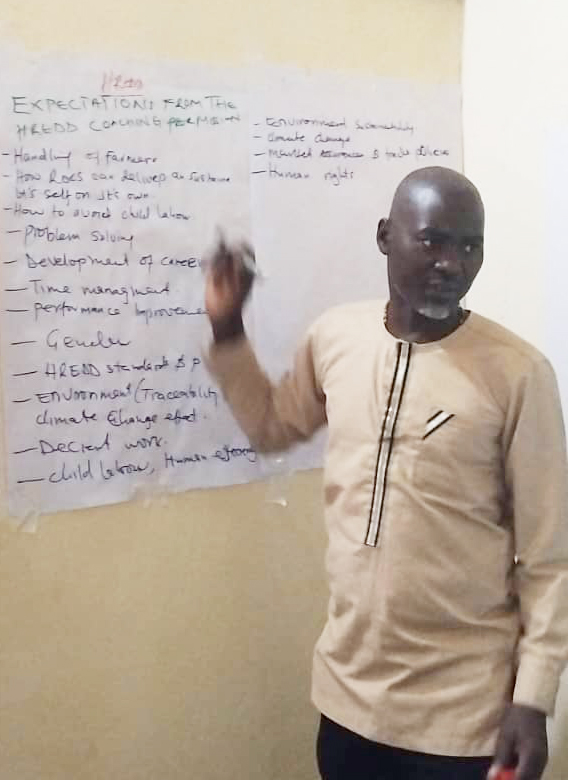 EXPECTATIONS FROM THE
HREDD COACHING
- Handling of farmers
- How RDEs can deliver
it's self on it's own.
- How to avoid child labour
- Problem Solving
- Development of career
- Time managment
- performance Improveme
- Gender
- HREDD standards & P
- ENVIRONMENT/Traceability
climate Change effect.
- Decient work.
- child labour, Human
- Environment Sustainability
- climate change
- & trade
- Human rights